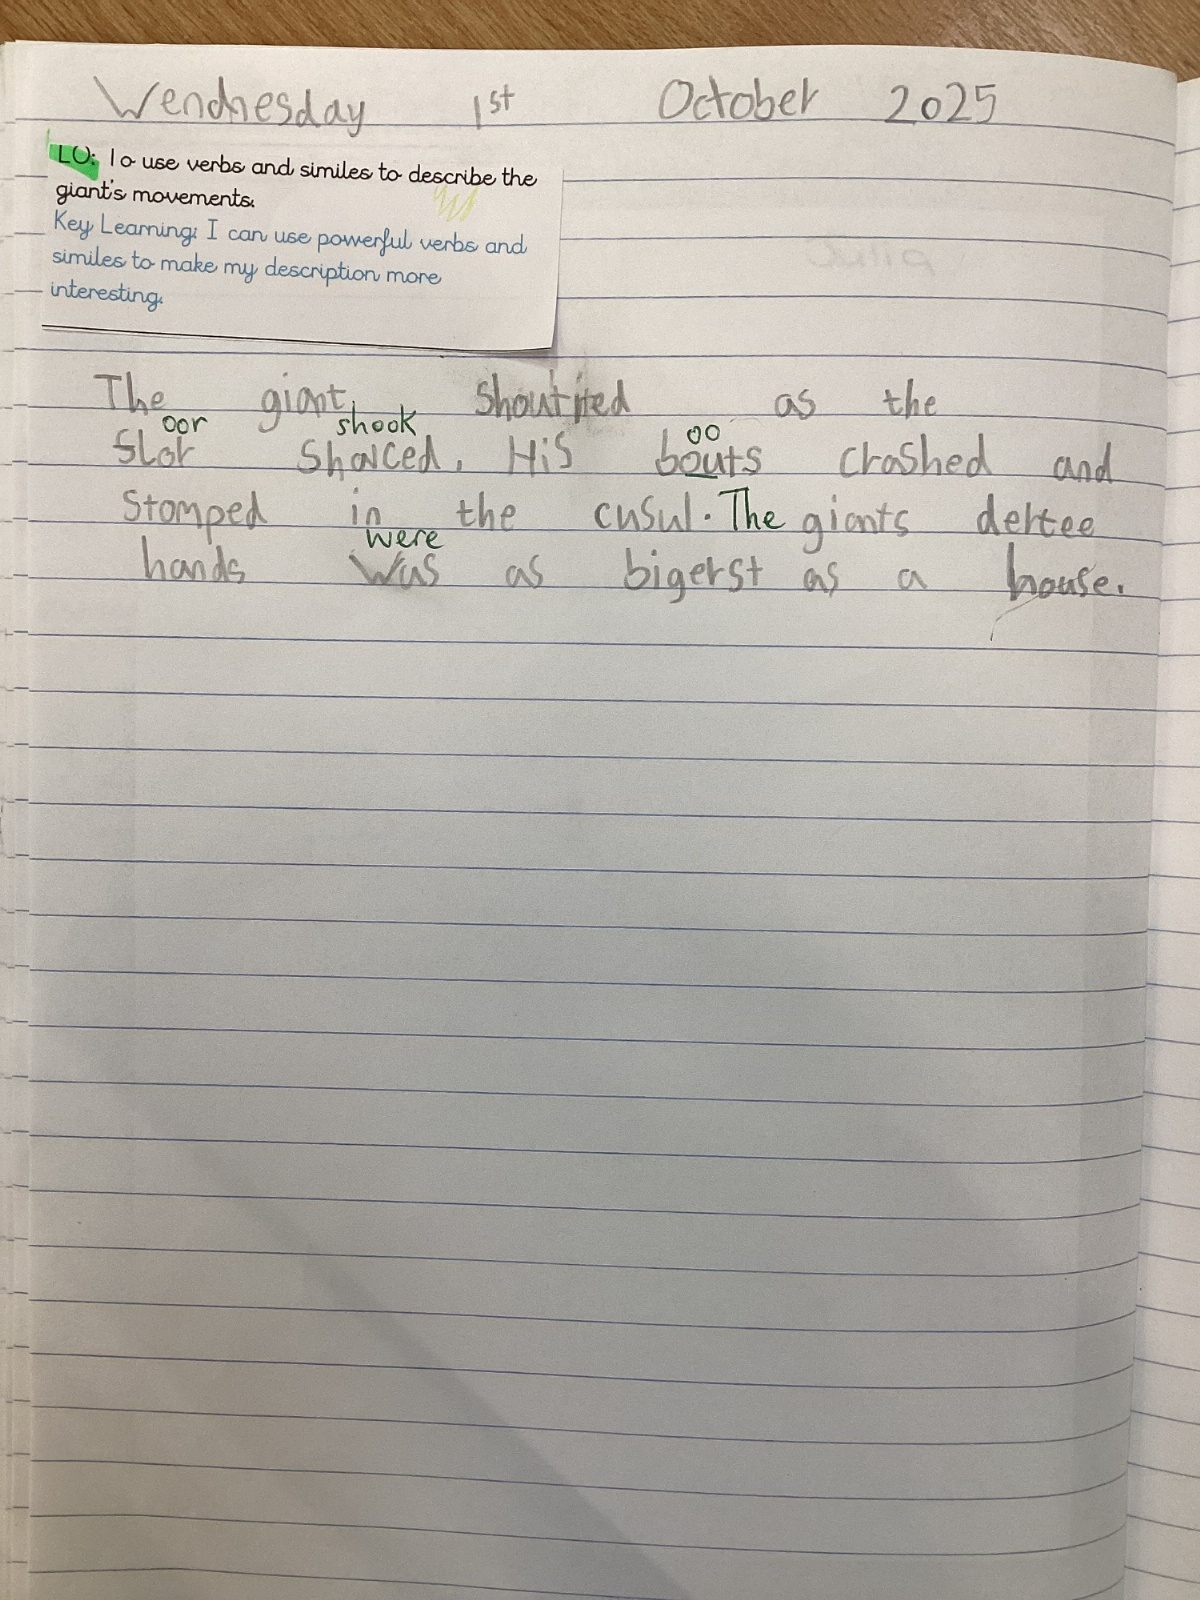 Wendnesday 1st October 2025
LO: To use verbs and similes to describe the
giant's movements.
Key Learning: I can use powerful verbs and
similes to make my description more
interesting.
The giant shoutited as the
oor shook oo
flor shalced. His bouts crashed and
stomped in the cusul. The giants dertee
were
hands was as bigerst as a house.